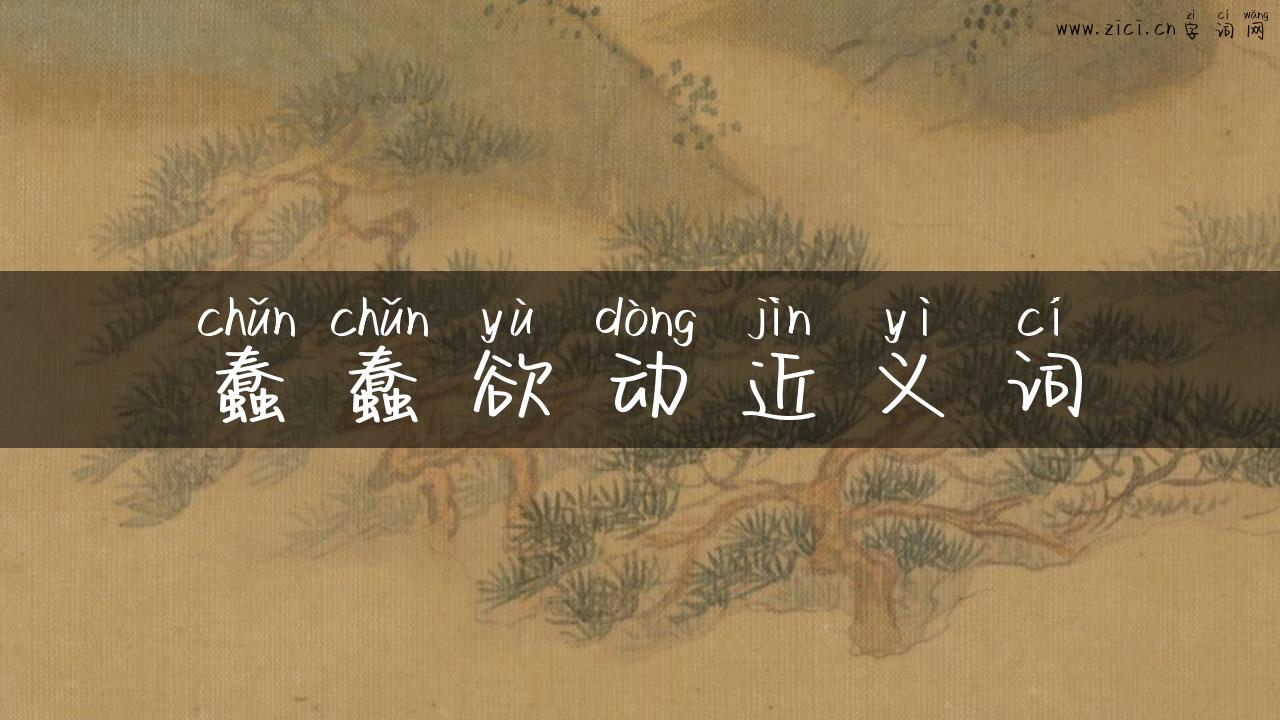 zì cí wǎng
www.zici.cn 字词网
chǔn chǔn yù dòng jìn yì cí
蠢蠢欲动近义词